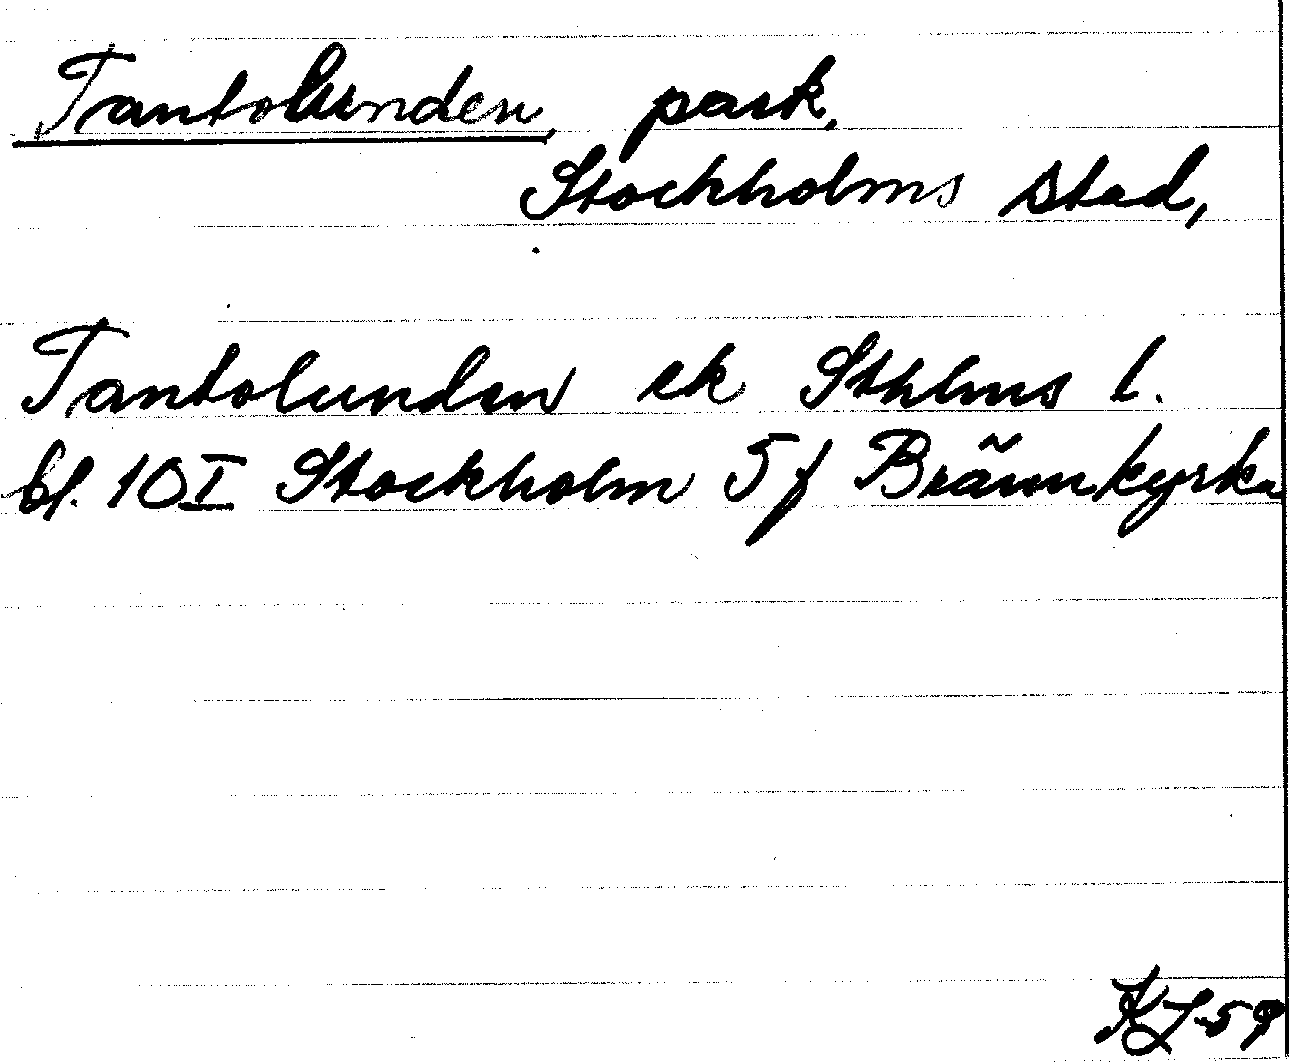 Tantolunden, park,
Stockholms stad,
Tantolunden ek Sthlms l.
bl. 10 I Stockholm 5 f Brännkyrka
KJ-59